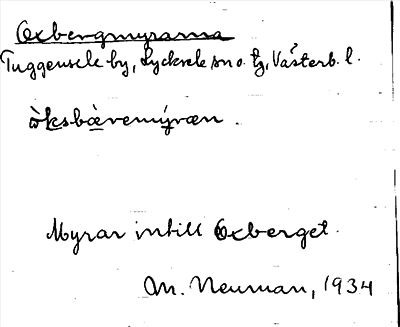 Oxbergmyrarna
Tuggensele by, Lycksele sn o. tg, Västerb. l.
òksbàremýræn.
Myrar intill Oxberget.
M. Neuman, 1934